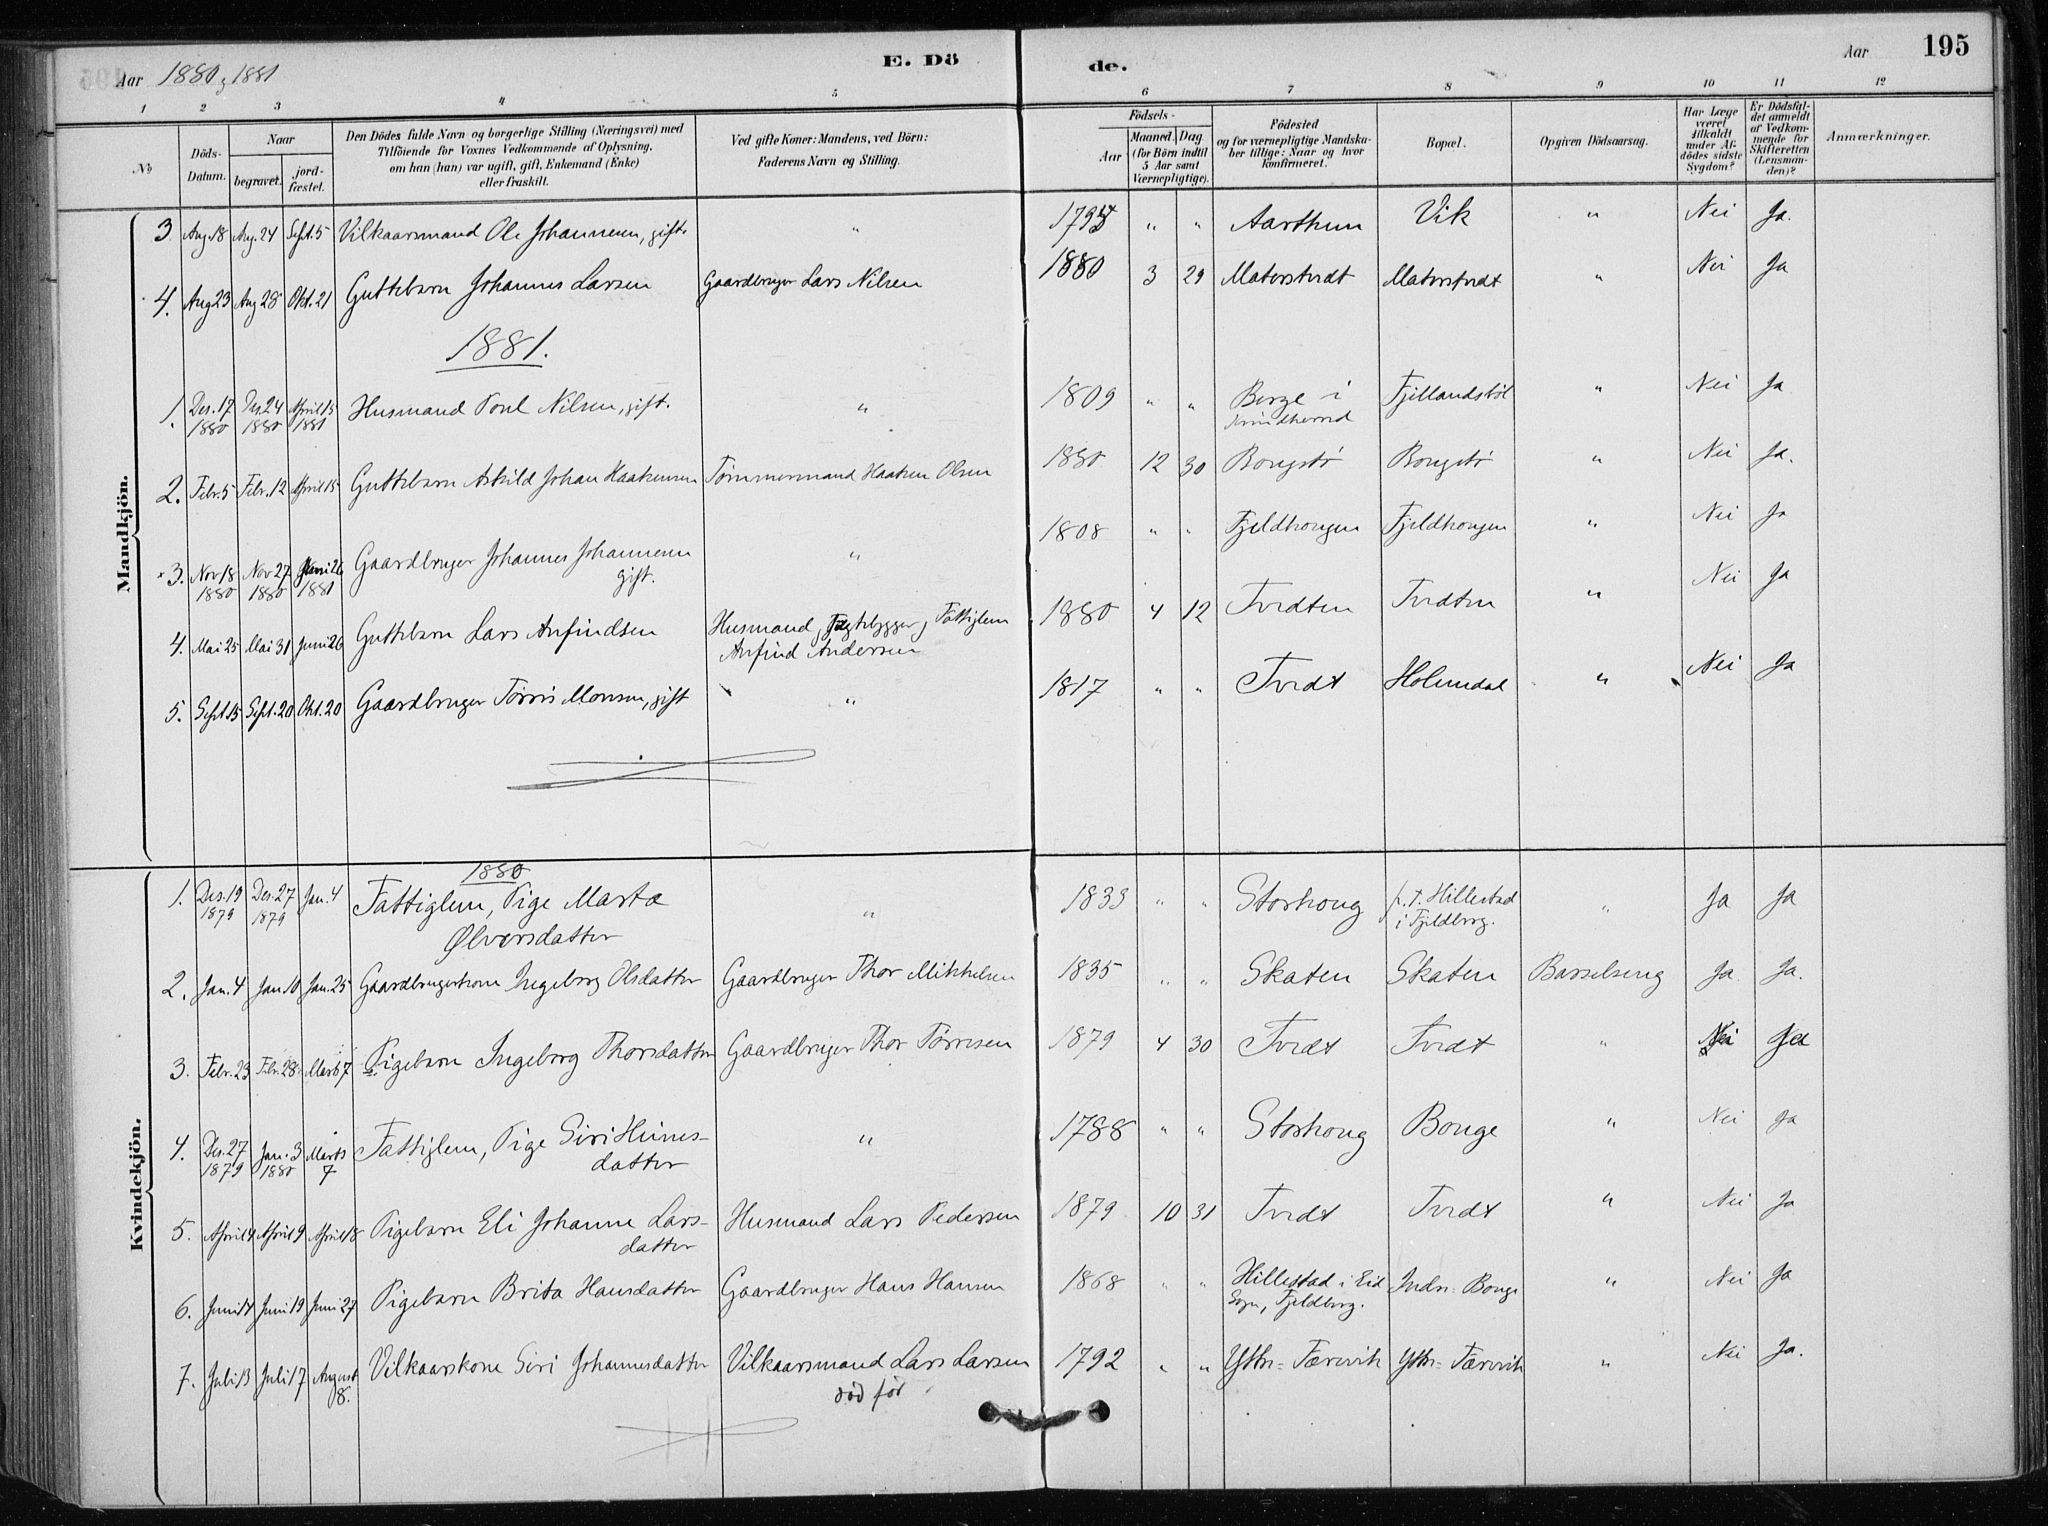 Aar 1880 & 1881 E. Dö de. Aar 195
1 2 3 4 5 6 7 8 9 10 11 12
No
Döds-Datum.
Naar
begravet.
jord-fæstet.
Den Dödes fulde Navn og borgerlige Stilling (Næringsvei) med
Tilföiende for Voxnes Vedkommende af Oplysning,
om han (hun) var ugift, gift, Enkemand (Enke)
eller fraskilt.
Ved gifte Koner: Mandens, ved Börn:
Faderens Navn og Stilling.
Födsels-
Aar
Maaned. Dag.
(for Börn indtil
5 Aar samt
Værnepligtige).
Födested
og for værnepligtige Mandska-
ber tillige: Naar og hvor
konfirmeret.
Bopæl.
Opgiven Dödsaarsag.
Har Læge
været
tilkaldt
under Af-
dödes sidste
Sygdom?
Er Dödsfal-
det anmeldt
af Vedkom-
mende for
Skifteretten
(Lensman-
den)?
Anmærkninger.
Mandkjön.
3. Aug. 18 Aug. 24 Sept. 5 Vilkaarsmand Ole Johannesen, gift. " " " Aarthun Vik " Nei Ja.
4. Aug 23 Aug 28 Okt. 21 Guttebarn Johannes Larsen Gaardbruger Lars Nilsen 1880 3 29 Materstvedt Materstvedt " Nei Ja
1881.
1. Des. 17 Des. 24 April 15 Husmand Poul Nilsen, gift. " 1809 " " Berge i " Nei Ja
1880 1880 1881 Kvindherred
2. Febr. 5 Febr. 12 April 15 Guttebarn Askild Johan Haakensen Tømmermand Haaken Olsen 1880 12 30 Bongstø Bongstø " Nei Ja.
3. Nov 18 Nov 27 Juni 26 Gaardbruger Johannes Johannesen " 1808 " " Fjeldhougen Fjeldhougen " Nei Ja
1880 1880 1881 gift.
4. Mai 25 Mai 31 Juni 26 Guttebarn Lars Anfindsen Husmand, Fattiglem 1880 4 12 Tvedten Tvedten " Nei Ja
Anfind Andersen
5. Sept. 15 Sept. 20 Okt. 20 Gaardbruger Tørris Monsen, gift " 1817 " " Tvedt Holmedal " Nei Ja
Kvindekjön.
1880
1. Des. 19 Des. 27 Jan. 4 Fattiglem, Pige Marta " 1833 " " Storhoug p. t. Hillestad " Ja Ja
1879 1879 Ølversdatter i Fjeldberg.
2. Jan. 4 Jan. 10 Jan. 25 Gaardbrugerkone Ingeborg Olsdatter Gaardbruger Thor Mikkelsen 1835 " " Skaten Skaten Barselseng Ja Ja.
3. Febr. 23 Febr. 28 Marts 7 Pigebarn Ingeborg Thorsdatter Gaardbruger Thor Tørresen 1879 4 30 Tvedt Tvedt " Nei Ja
4. Des. 27 Jan. 3 Marts Fattiglem, Pige Siri Heines- " 1788 " " Storhoug Bouge " Nei Ja
1879 1880 7 datter
5. April 4 April 9 April 18 Pigebarn Eli Johanne Lars- Husmand Lars Pedersen 1879 10 31 Tvedt Tvedt " Nei Ja
datter
6. Juni 14 Juni 19 Juni 27 Pigebarn Brita Hansdatter Gaardbruger Hans Hansen 1868 " " Hillestad i Eid Indre Bouge " Nei Ja
Sogn, Fjeldberg.
7. Juli 13 Juli 17 August Vilkaarskone Siri Johannesdatter Vilkaarsmand Lars Larsen 1792 " " Ythre Færevik Ythre Færevik " Nei Ja.
8. død før